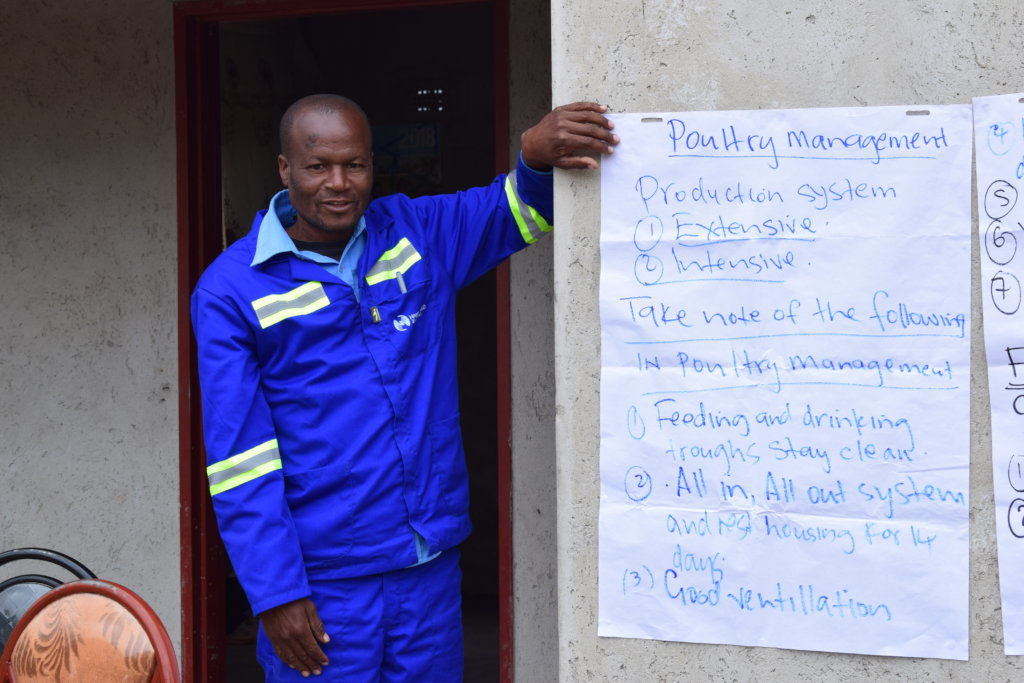 2018
Poultry Management
Production system
① Extensive.
② Intensive.
Take note of the following
IN Poultry Management
① Feeding and drinking
troughs stay clean.
② . All in, All out system
and rest housing for 14
days.
(3) Good ventillation
4
5
6
7